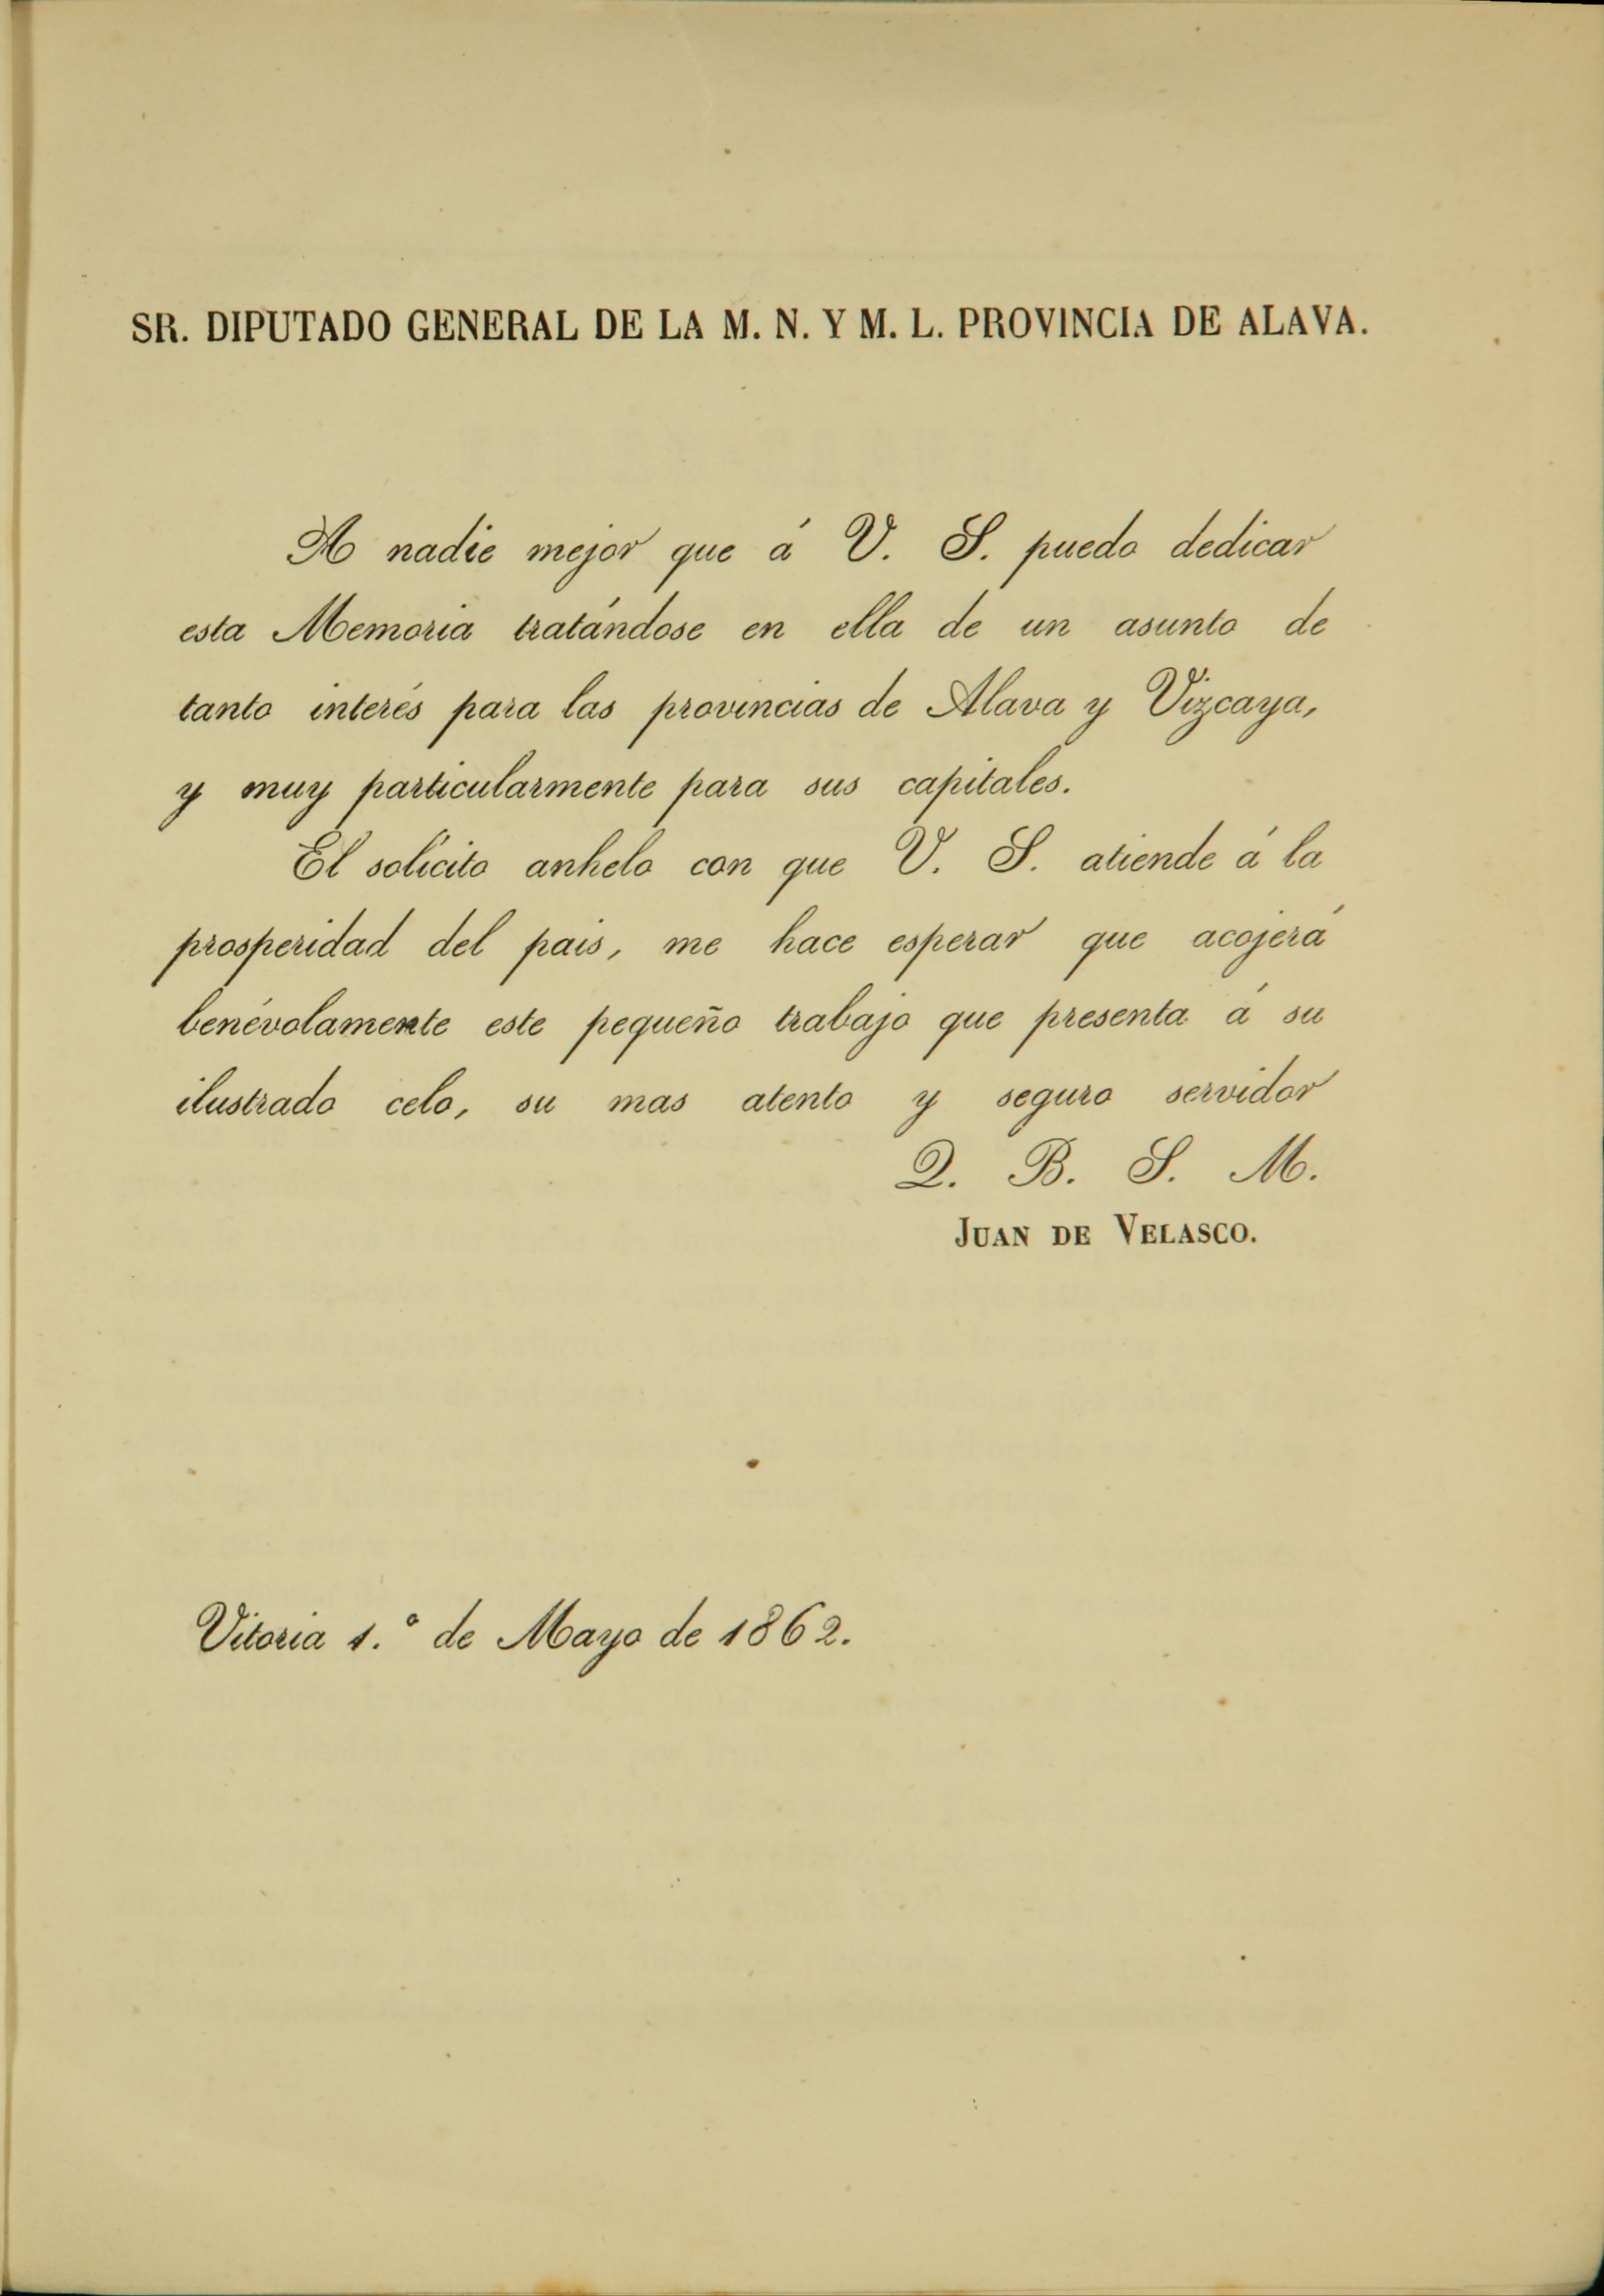 SR. DIPUTADO GENERAL DE LA M. N. Y M. L. PROVINCIA DE ALAVA.
A nadie mejor que á V. S. puedo dedicar
esta Memoria tratándose en ella de un asunto de
tanto interés para las provincias de Alava y Vizcaya,
y muy particularmente para sus capitales.
El solícito anhelo con que V. S. atiende á la
prosperidad del pais, me hace esperar que acojerá
benévolamente este pequeño trabajo que presenta á su
ilustrado celo, su mas atento y seguro servidor
Q. B. S. M.
JUAN DE VELASCO.
Vitoria 1.º de Mayo de 1862.